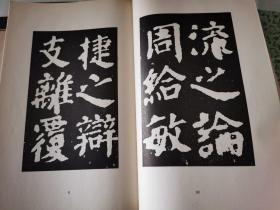 流之論
周給敏
捷之辯
支離覆